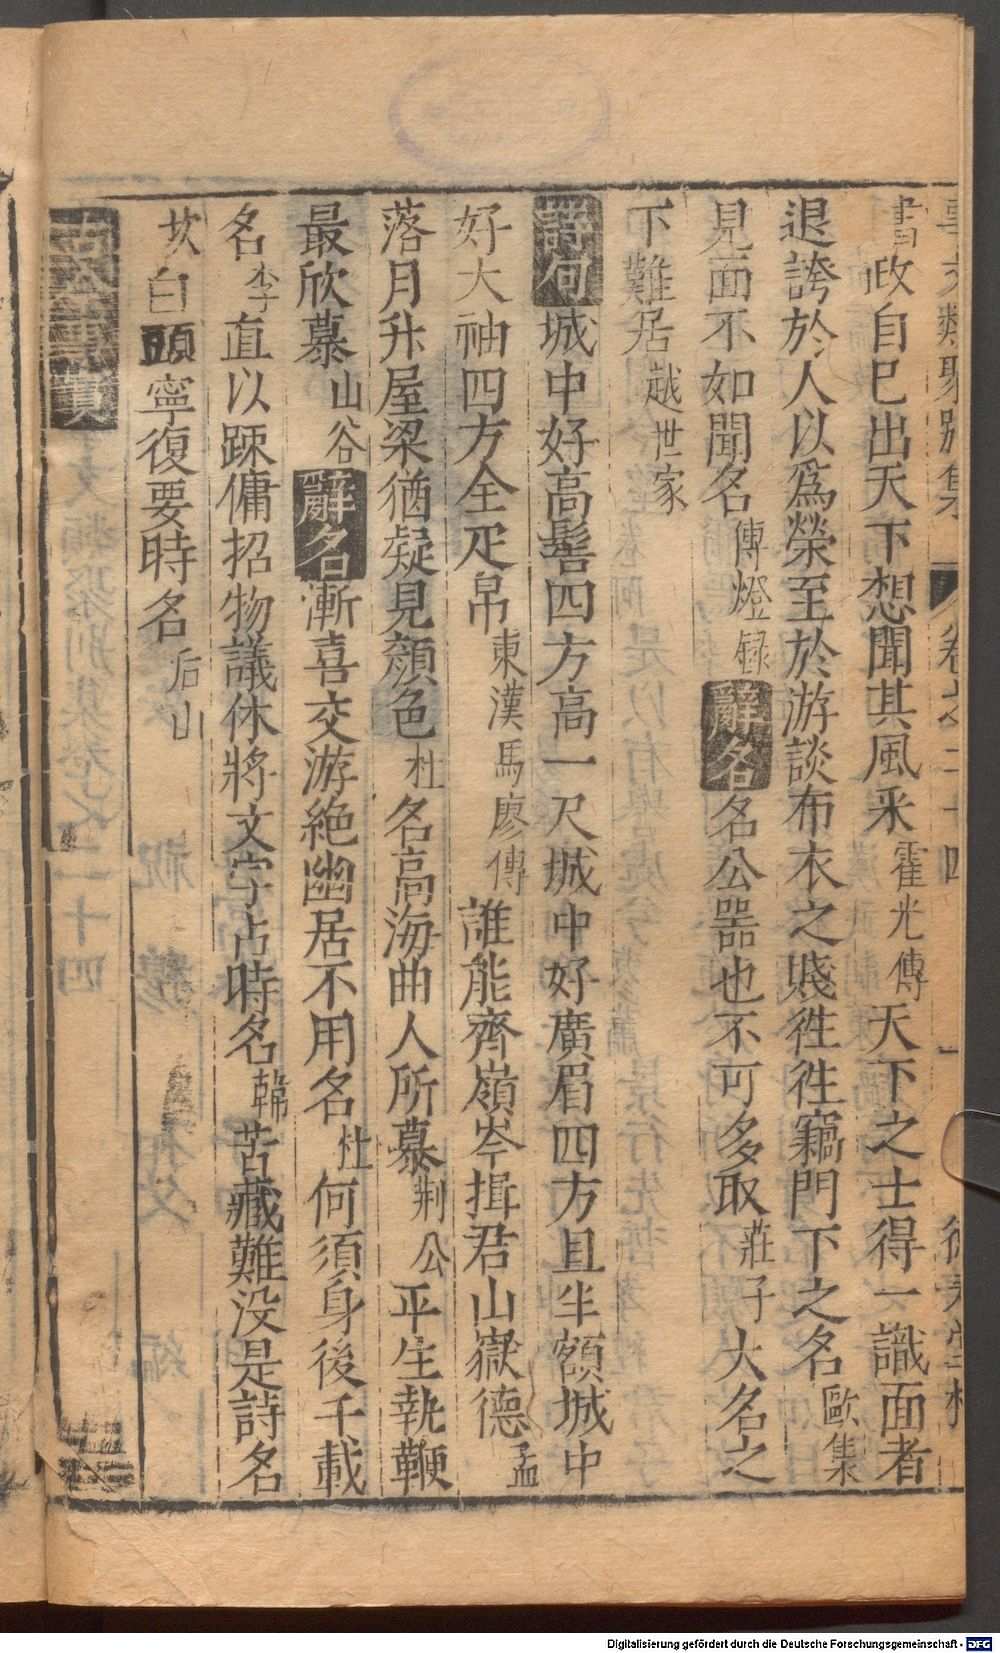 書政自巳出天下想聞其風采霍光傳天下之士得一識面者
退誇於人以爲榮至於游談布衣之賤徃徃竊門下之名歐集
見面不如聞名傳燈録辭名名公器也不可多取莊子大名之
下難居越世家
詩句城中好高髻四方高一尺城中好廣眉四方且半額城中
好大袖四方全疋帛東漢馬廖傳誰能齊嶺岑揖君山嶽德孟
落月升屋梁猶疑見顔色杜名高海曲人所慕荆公平生執鞭
最欣慕山谷辭名漸喜交游絶幽居不用名杜何須身後千載
名李直以踈傭招物議休將文字占時名韓苦藏難没是詩名
坎白頭寧復要時名后山
Digitalisierung gefördert durch die Deutsche Forschungsgemeinschaft - DFG